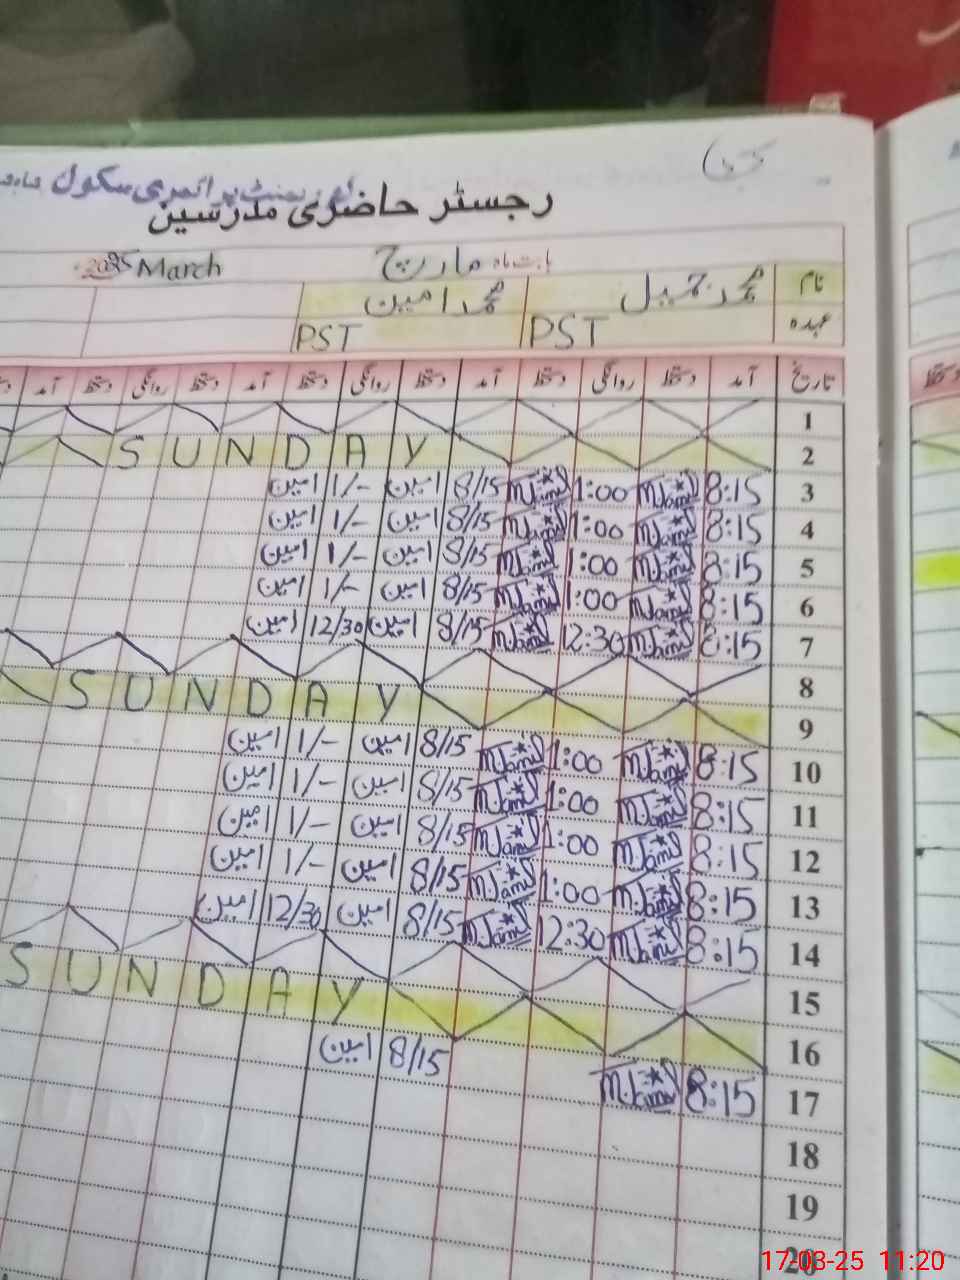 گورنمنٹ پرائمری سکول
رجسٹر حاضری مدرسین
بابت ماہ مارچ March 2025
نام محمد جمیل محمد امین
عہدہ PST PST
تاریخ آمد دستخط روانگی دستخط آمد دستخط روانگی دستخط آمد دستخط روانگی دستخط آمد
1
2 SUNDAY
3 8:15 M.Jamil 1:00 M.Jamil 8/15 امین 1/- امین
4 8:15 M.Jamil 1:00 M.Jamil 8/15 امین 1/- امین
5 8:15 M.Jamil 1:00 M.Jamil 8/15 امین 1/- امین
6 8:15 M.Jamil 1:00 M.Jamil 8/15 امین 1/- امین
7 8:15 M.Jamil 12:30 M.Jamil 8/15 امین 12/30 امین
8
9 SUNDAY
10 8:15 M.Jamil 1:00 M.Jamil 8/15 امین 1/- امین
11 8:15 M.Jamil 1:00 M.Jamil 8/15 امین 1/- امین
12 8:15 M.Jamil 1:00 M.Jamil 8/15 امین 1/- امین
13 8:15 M.Jamil 1:00 M.Jamil 8/15 امین 1/- امین
14 8:15 M.Jamil 12:30 M.Jamil 8/15 امین 12/30 امین
15
16 SUNDAY
17 8:15 M.Jamil 8/15 امین
18
19
20
17-03-25 11:20